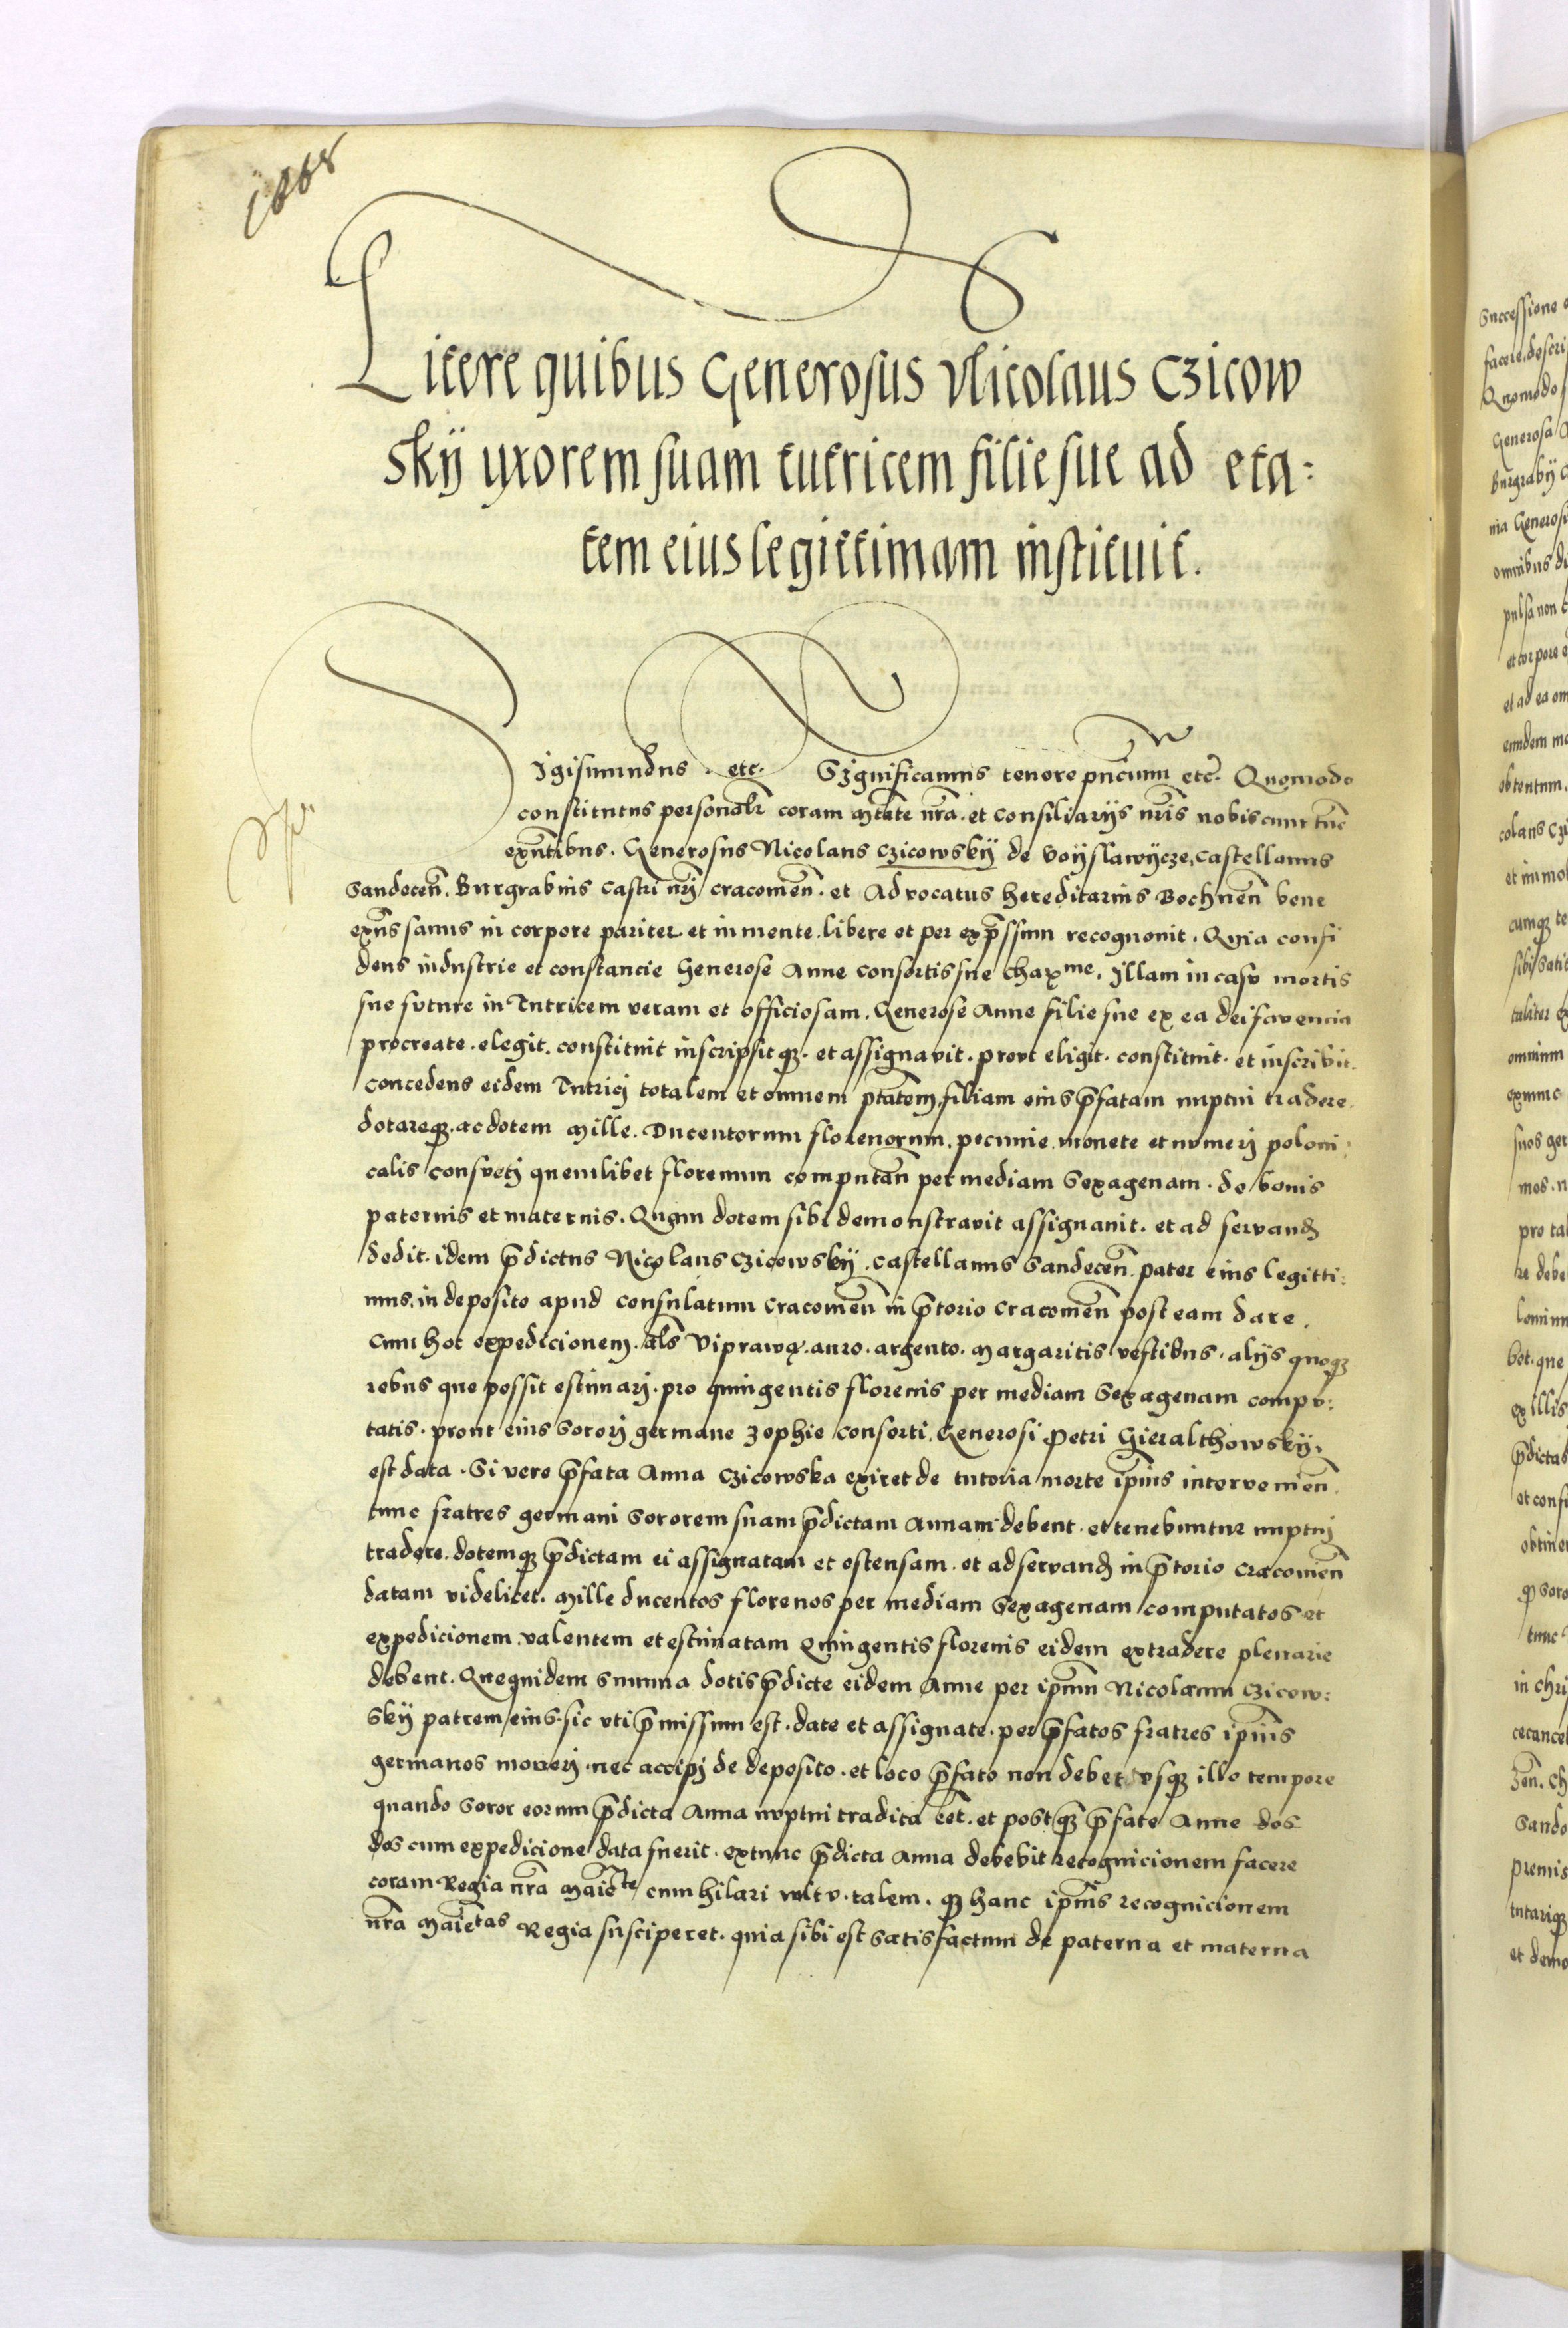 Litere quibus Generosus Nicolaus Czicow
skÿ uxorem suam tutricem filie sue ad eta:
tem eius legittimam instituit.
Sigismundus etc. Significamus tenore pñcium etc. Quomodo
constitutus personalr coram Mtate nrã et consiliarijs nrĩs nobiscum tũc
exñtibus. Generosus Nicolaus Czicowskÿ de Voÿslawÿcze, Castellanus
Sandeceñ. Burgrabius Castri nrj Cracovieñ. et Advocatus hereditarius Bochneñ bene
exñs sanus in corpore pariter et in mente. libere et per exp̃ssum recognovit. Quia confi
dens industrie et constancie Generose Anne consortis sue chaxme. Illam in casu mortis
sue future in Tutricem veram et officiosam. Generose Anne filie sue ex ea dei favencia
procreate. elegit. constituit inscripsitqz. et assignavit. prout eligit. constituit. et inscribit.
Concedens eidem Tutricj totalem et omnem ptãtem, filiam eius p̃fatam nuptui tradere.
dotareqz. ac dotem Mille. Ducentorum florenorum. pecunie. monete et numerj poloni:
calis consuetj quemlibet florenum computañ per mediam Sexagenam. de bonis
paternis et maternis. Quam dotem sibi demonstravit assignavit. et ad servand̃
dedit. idem p̃dictus Nicolaus Czicowskÿ. Castellanus Sandeceñ. pater eius legitti:
mus. in deposito apud consulatum Cracovieñ in p̃torio Cracovieñ post eam dare.
cum hoc expedicionem. als Viprawą. auro. argento. Margaritis vestibus. alijs quoqz
rebus que possit estimarj. pro quingentis florenis per mediam Sexagenam compu:
tatis. prout eius Sororj germane Zophie consorti. Generosi Petri Gieralthowskÿ.
est data. Si vero p̃fata Anna Czicowska exiret de tutoria morte ip̃ius intervenieñ.
tunc fratres germani Sororem suam p̃dictam Annam debent. et tenebuntur nuptuj
tradere. dotemqz p̃dictam ei assignatam et ostensam. et ad servand̃ in p̃torio Cracovieñ
datam videlicet. Mille ducentos florenos per mediam Sexagenam computatos et
expedicionem valentem et estimatam Quingentis florenis eidem extradere plenarie
debent. Quequidem Summa dotis p̃dicte eidem Anne per ip̃um Nicolaum Czicow:
skÿ patrem eius. sic uti p̃missum est. date et assignate. per p̃fatos fratres ip̃ius
germanos moverj. nec accipj de deposito. et loco p̃fato non debet usqz illo tempore
quando Soror eorum p̃dicta Anna nuptui tradita eẽt. et postqz p̃fate Anne dos
dos cum expedicione data fuerit. extunc p̃dicta Anna debebit recognicionem facere
coram Regia nrã Maiete cum hilari vultu. talem. qz hanc ip̃ius recognicionem
nrã Maietas Regia susciperet. quia sibi est satisfactum de paterna et materna